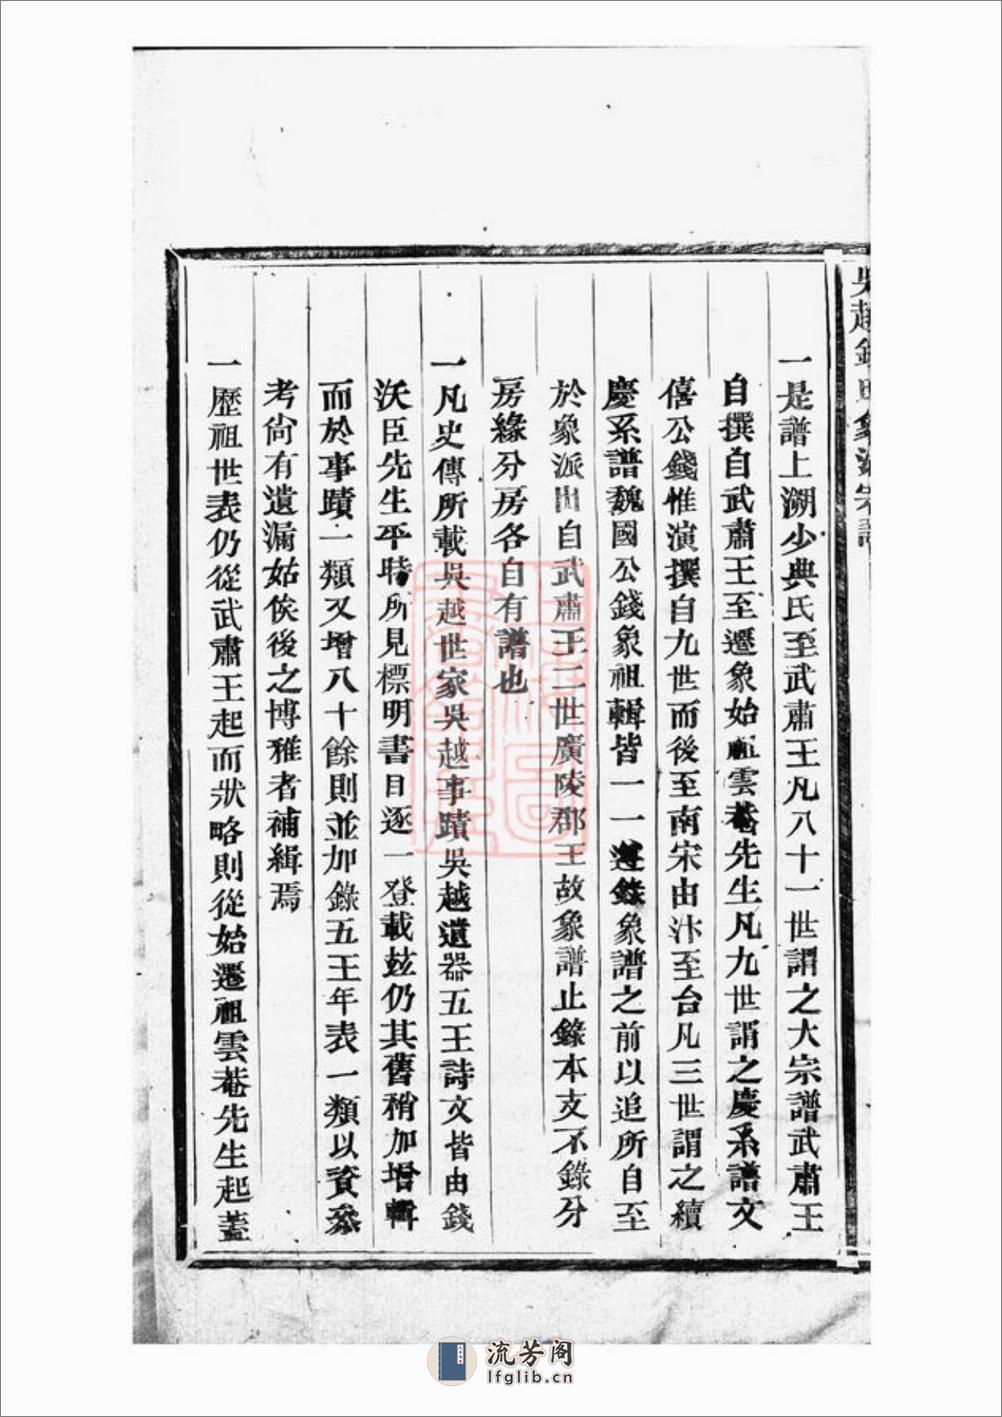 吳越錢氏象派宗譜
一是譜上溯少典氏至武肅王凡八十一世謂之大宗譜武肅王
自撰自武肅王至遷象始祖雲菴先生凡九世謂之慶系譜文
僖公錢惟演撰自九世而後至南宋由汴至台凡三世謂之續
慶系譜魏國公錢象祖輯皆一一遵錄象譜之前以追所自至
於象派出自武肅王二世廣陵郡王故象譜止錄本支不錄分
房緣分房各自有譜也
一凡史傳所載吳越世家吳越事蹟吳越遺器五王詩文皆由錢
沃臣先生平時所見標明書目逐一登載玆仍其舊稍加增輯
而於事蹟一類又增八十餘則並加錄五王年表一類以資叅
考尙有遺漏姑俟後之博雅者補緝焉
一歷祖世表仍從武肅王起而狀略則從始遷祖雲菴先生起蓋
流芳阁
lfglib.cn